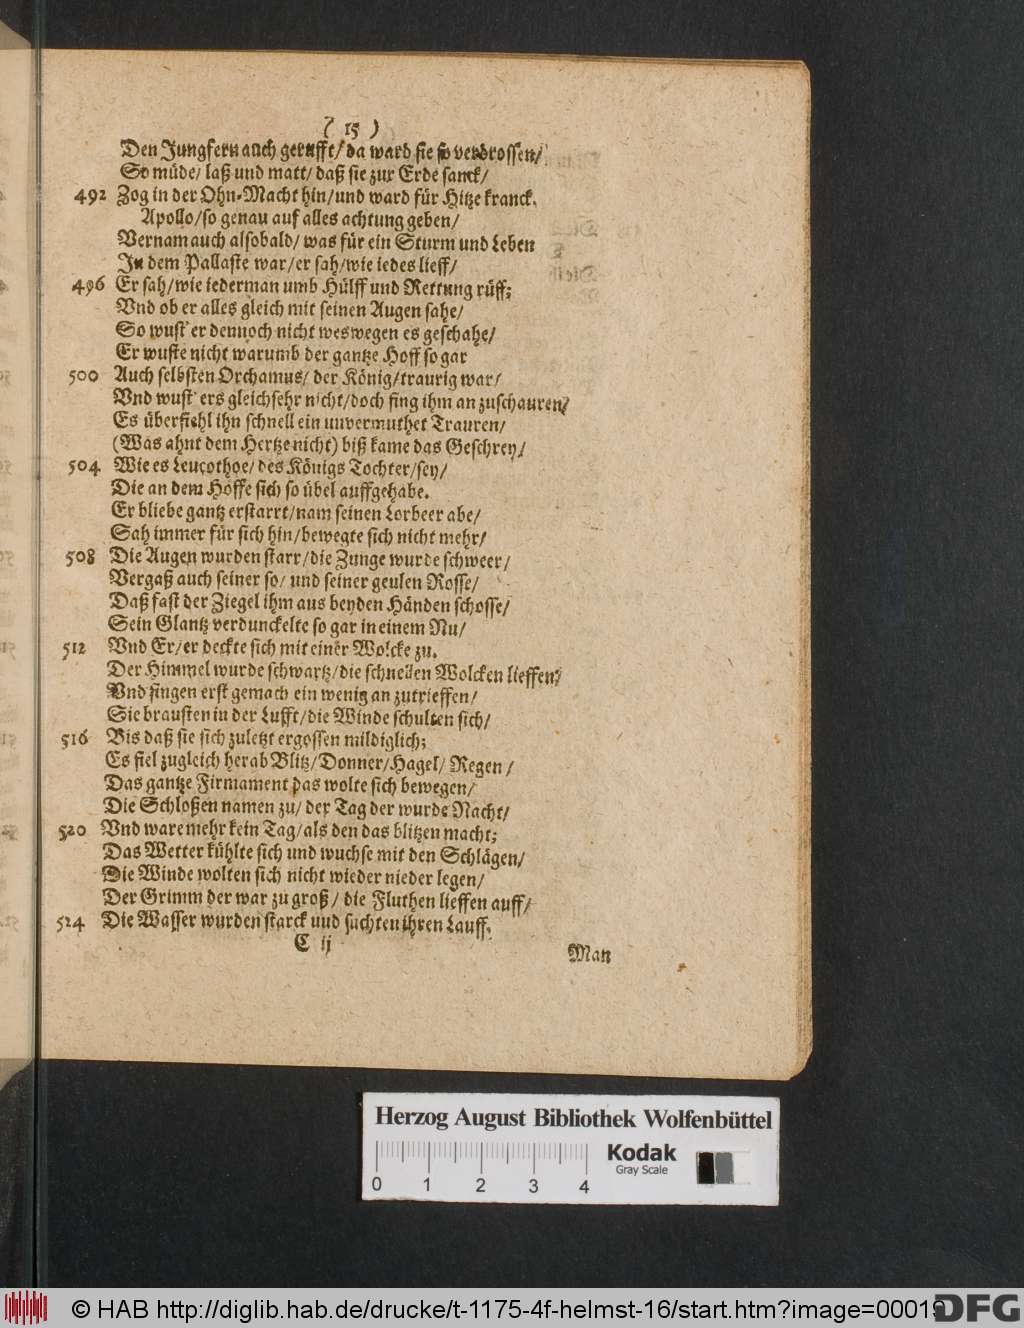 ( 15 )
Den Jungfern auch gerufft/ da ward sie so verdrossen/
So müde/ laß und matt/ daß sie zur Erde sanck/
492 Zog in der Ohn-Macht hin/ und ward für Hitze kranck.
Apollo/ so genau auf alles achtung geben/
Vernam auch alsobald/ was für ein Sturm und Leben
In dem Pallaste war/ er sah/ wie iedes lieff/
496 Er sah/ wie iederman umb Hülff und Rettung rüff;
Vnd ob er alles gleich mit seinen Augen sahe/
So wust' er dennoch nicht weswegen es geschahe/
Er wuste nicht warumb der gantze Hoff so gar
500 Auch selbsten Orchamus/ der König/ traurig war/
Vnd wust' ers gleich sehr nicht/ doch fing ihm an zuschauren/
Es überfiehl ihn schnell ein unvermuthet Trauren/
(Was ahnt dem Hertze nicht) biß kame das Geschrey/
504 Wie es Leucothoe/ des Königs Tochter/ sey/
Die an dem Hoffe sich so übel auffgehabe.
Er bliebe gantz erstarrt/ nam seinen Lorbeer abe/
Sah immer für sich hin/ bewegte sich nicht mehr/
508 Die Augen wurden starr/ die Zunge wurde schweer/
Vergaß auch seiner so/ und seiner geulen Rosse/
Daß fast der Ziegel ihm aus beyden Händen schosse/
Sein Glantz verdunckelte so gar in einem Nu/
512 Vnd Er/ er deckte sich mit einer Wolcke zu.
Der Himmel wurde schwartz/ die schnellen Wolcken lieffen/
Vnd fingen erst gemach ein wenig an zutrieffen/
Sie brausten in der Lufft/ die Winde schulten sich/
516 Bis daß sie sich zuletzt ergossen mildiglich;
Es fiel zugleich herab Blitz/ Donner/ Hagel/ Regen/
Das gantze Firmament das wolte sich bewegen/
Die Schloßen namen zu/ der Tag der wurde Nacht/
520 Vnd ware mehr kein Tag/ als den das blitzen macht;
Das Wetter kühlte sich und wuchse mit den Schlägen/
Die Winde wolten sich nicht wieder nieder legen/
Der Grimm der war zu groß/ die Fluthen lieffen auff/
524 Die Wasser wurden starck und suchten ihren Lauff.
C ij
Man
Herzog August Bibliothek Wolfenbüttel
Kodak
Gray Scale
0 1 2 3 4
© HAB http://diglib.hab.de/drucke/t-1175-4f-helmst-16/start.htm?image=00019
DFG